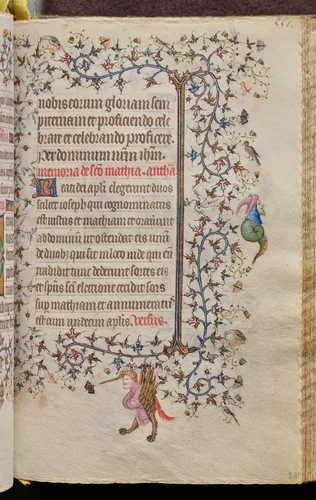 nobis eorum gloriam sem
piternam et proficiendo cele
brare et celebrando proficere
Per dominum nrm ihm
memoria de sco mathia. antha
Laudet apli elegerunt duos
scilicet ioseph qui cognominatus
est iustus et mathiam et orauerunt
ad dominum ut ostendat eis unum
de duobz qui sit in loco inde qui em
tradidit tunc dederunt sortes eis
et spus sci electione cecidit sors
sup mathiam et annumeratus
est cum undecim aplis. Versus.